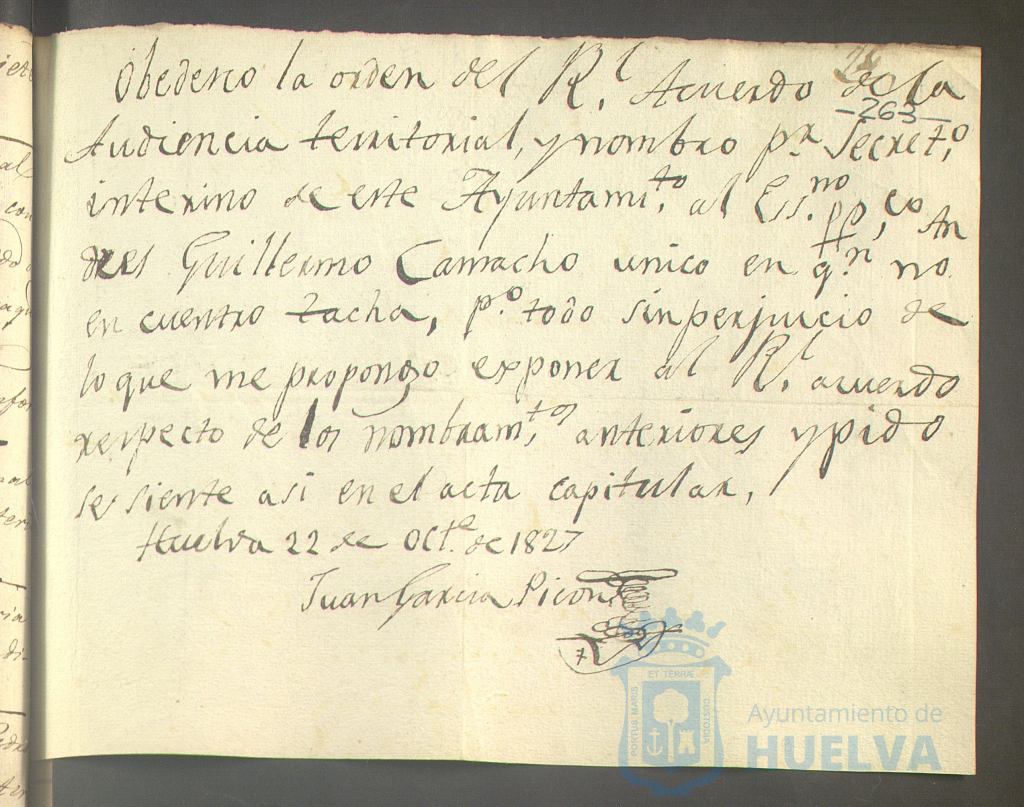 Obedesco la orden del R.l Acuerdo de la
-263-
Audiencia territorial, y nombro p.r Secret.o
interino de este Ayuntami.to al Ess.no pp.co An
dres Guillermo Camacho unico en q.n no
en cuentro tacha, p.o todo sin perjuicio de
lo que me propongo exponer al R.l acuerdo
respecto de los nombram.tos anteriores y pido
se siente asi en el acta capitular,
Huelva 22 de Oct.e de 1827
Juan Garcia Picon
ET TERRÆ
PORTUS MARIS
CUSTODIA
Ayuntamiento de
HUELVA